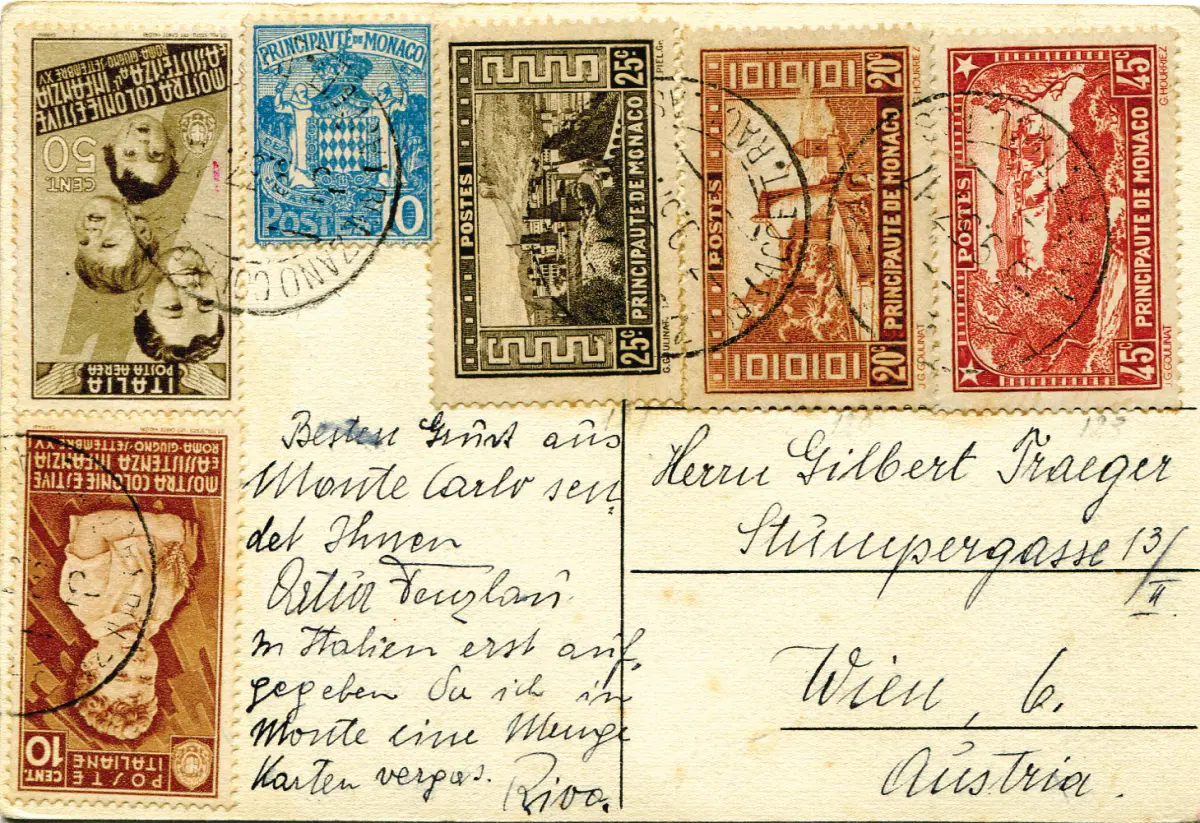 MOSTRA COLONIE ESTIVE
E ASSISTENZA INFANZIA
ROMA·GIUGNO-SETTEMBRE XV
50
CENT
ITALIA
POSTA AEREA
PRINCIPAUTÉ DE MONACO
POSTES
0
25c
POSTES
PRINCIPAUTE DE MONACO
25c
G.GOULINAT
20c
POSTES
PRINCIPAUTE DE MONACO
20c
J.G.GOULINAT
45c
G.HOURRIEZ
POSTES
PRINCIPAUTE DE MONACO
45c
J.G.GOULINAT
MOSTRA COLONIE ESTIVE
E ASSISTENZA INFANZIA
ROMA·GIUGNO-SETTEMBRE XV
10
CENT.
POSTE
ITALIANE
Besten Gruss aus
Monte Carlo sen
det Ihnen
Artur
in Italien erst auf
gegeben da ich in
Monte eine Menge
Karten vergas. Riva.
Herrn Gilbert Traeger
Stumpergasse 13/
II
Wien, 6.
Austria.